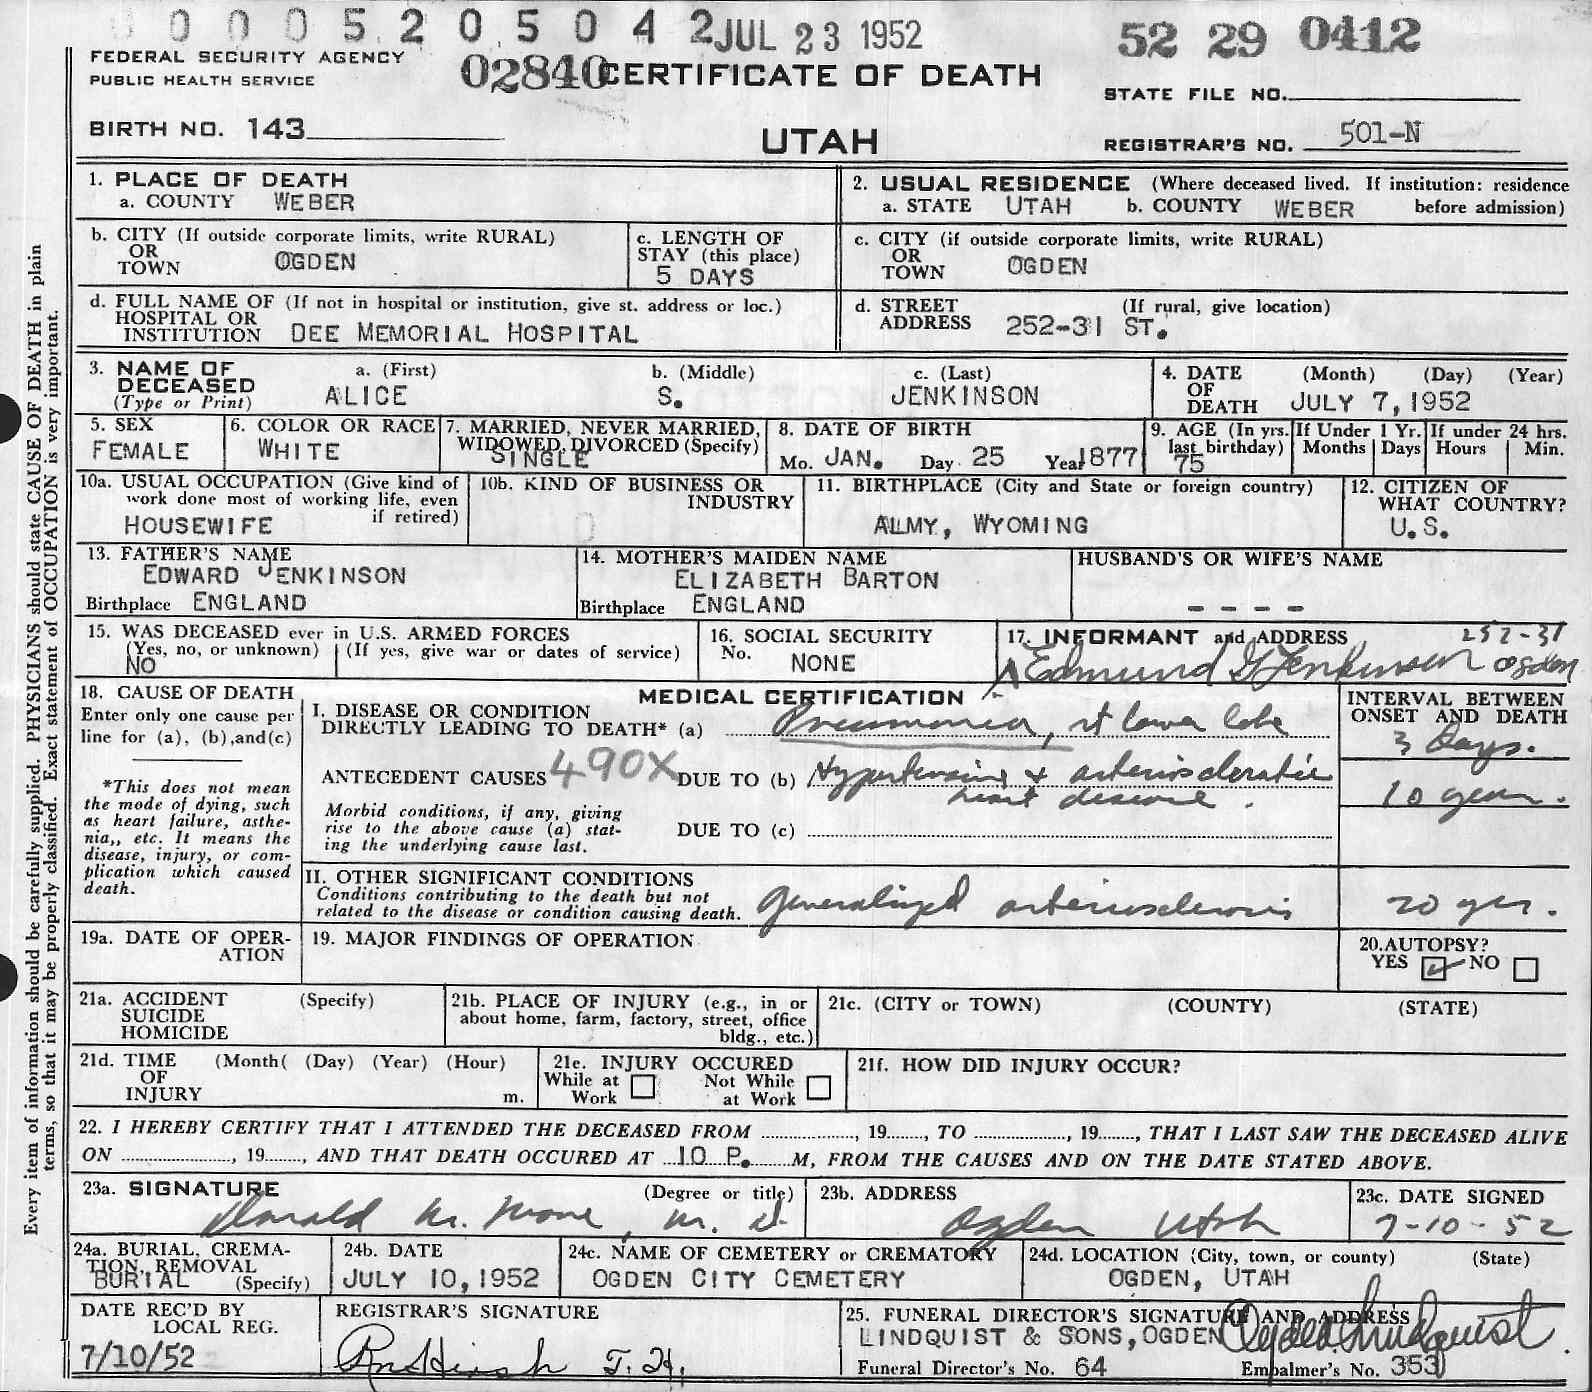 0 0 0 5 2 0 5 0 4 2 JUL 23 1952 52 29 0412
FEDERAL SECURITY AGENCY
PUBLIC HEALTH SERVICE
02840 CERTIFICATE OF DEATH
STATE FILE NO.
BIRTH NO. 143
UTAH
REGISTRAR'S NO. 501-N
1. PLACE OF DEATH
a. COUNTY WEBER
2. USUAL RESIDENCE (Where deceased lived. If institution: residence before admission)
a. STATE UTAH b. COUNTY WEBER
b. CITY (If outside corporate limits, write RURAL)
OR
TOWN OGDEN
c. LENGTH OF
STAY (this place)
5 DAYS
c. CITY (if outside corporate limits, write RURAL)
OR
TOWN OGDEN
d. FULL NAME OF (If not in hospital or institution, give st. address or loc.)
HOSPITAL OR
INSTITUTION DEE MEMORIAL HOSPITAL
d. STREET (If rural, give location)
ADDRESS 252-31 ST.
3. NAME OF
DECEASED
(Type or Print)
a. (First) b. (Middle) c. (Last)
ALICE S. JENKINSON
4. DATE (Month) (Day) (Year)
OF
DEATH JULY 7, 1952
5. SEX
FEMALE
6. COLOR OR RACE
WHITE
7. MARRIED, NEVER MARRIED,
WIDOWED, DIVORCED (Specify)
SINGLE
8. DATE OF BIRTH
Mo. JAN. Day 25 Year 1877
9. AGE (In yrs.
last birthday)
75
If Under 1 Yr.
Months Days
If under 24 hrs.
Hours Min.
10a. USUAL OCCUPATION (Give kind of
work done most of working life, even
if retired)
HOUSEWIFE
10b. KIND OF BUSINESS OR
INDUSTRY
11. BIRTHPLACE (City and State or foreign country)
ALMY, WYOMING
12. CITIZEN OF
WHAT COUNTRY?
U.S.
13. FATHER'S NAME
EDWARD JENKINSON
Birthplace ENGLAND
14. MOTHER'S MAIDEN NAME
ELIZABETH BARTON
Birthplace ENGLAND
HUSBAND'S OR WIFE'S NAME
- - - -
15. WAS DECEASED ever in U.S. ARMED FORCES
(Yes, no, or unknown) (If yes, give war or dates of service)
NO
16. SOCIAL SECURITY
No. NONE
17. INFORMANT and ADDRESS 252-31
Edmund G Jenkinson Ogden
18. CAUSE OF DEATH
Enter only one cause per
line for (a), (b),and(c)
*This does not mean
the mode of dying, such
as heart failure, asthe-
nia,, etc. It means the
disease, injury, or com-
plication which caused
death.
MEDICAL CERTIFICATION
I. DISEASE OR CONDITION
DIRECTLY LEADING TO DEATH* (a) Pneumonia, rt lower lobe
ANTECEDENT CAUSES 490X DUE TO (b) Hypertensive & arteriosclerotic
heart disease.
Morbid conditions, if any, giving
rise to the above cause (a) stat-
ing the underlying cause last.
DUE TO (c)
INTERVAL BETWEEN
ONSET AND DEATH
3 Days.
10 years.
II. OTHER SIGNIFICANT CONDITIONS
Conditions contributing to the death but not
related to the disease or condition causing death.
Generalized arteriosclerosis
20 yrs.
19a. DATE OF OPER-
ATION
19. MAJOR FINDINGS OF OPERATION
20.AUTOPSY?
YES ☑ NO ☐
21a. ACCIDENT (Specify)
SUICIDE
HOMICIDE
21b. PLACE OF INJURY (e.g., in or
about home, farm, factory, street, office
bldg., etc.)
21c. (CITY or TOWN) (COUNTY) (STATE)
21d. TIME (Month( (Day) (Year) (Hour)
OF
INJURY m.
21e. INJURY OCCURED
While at Work ☐ Not While at Work ☐
21f. HOW DID INJURY OCCUR?
22. I HEREBY CERTIFY THAT I ATTENDED THE DECEASED FROM ................, 19......., TO ................, 19......., THAT I LAST SAW THE DECEASED ALIVE
ON ................, 19......., AND THAT DEATH OCCURED AT 10 P. M, FROM THE CAUSES AND ON THE DATE STATED ABOVE.
23a. SIGNATURE (Degree or title)
Donald M. Moore, M. D.
23b. ADDRESS
Ogden Utah
23c. DATE SIGNED
7-10-52
24a. BURIAL, CREMA-
TION, REMOVAL
BURIAL (Specify)
24b. DATE
JULY 10, 1952
24c. NAME OF CEMETERY or CREMATORY
OGDEN CITY CEMETERY
24d. LOCATION (City, town, or county) (State)
OGDEN, UTAH
DATE REC'D BY
LOCAL REG.
7/10/52
REGISTRAR'S SIGNATURE
25. FUNERAL DIRECTOR'S SIGNATURE AND ADDRESS
LINDQUIST & SONS, OGDEN
Lindquist
Funeral Director's No. 64 Embalmer's No. 353
Every item of information should be carefully supplied. PHYSICIANS should state CAUSE OF DEATH in plain
terms, so that it may be properly classified. Exact statement of OCCUPATION is very important.